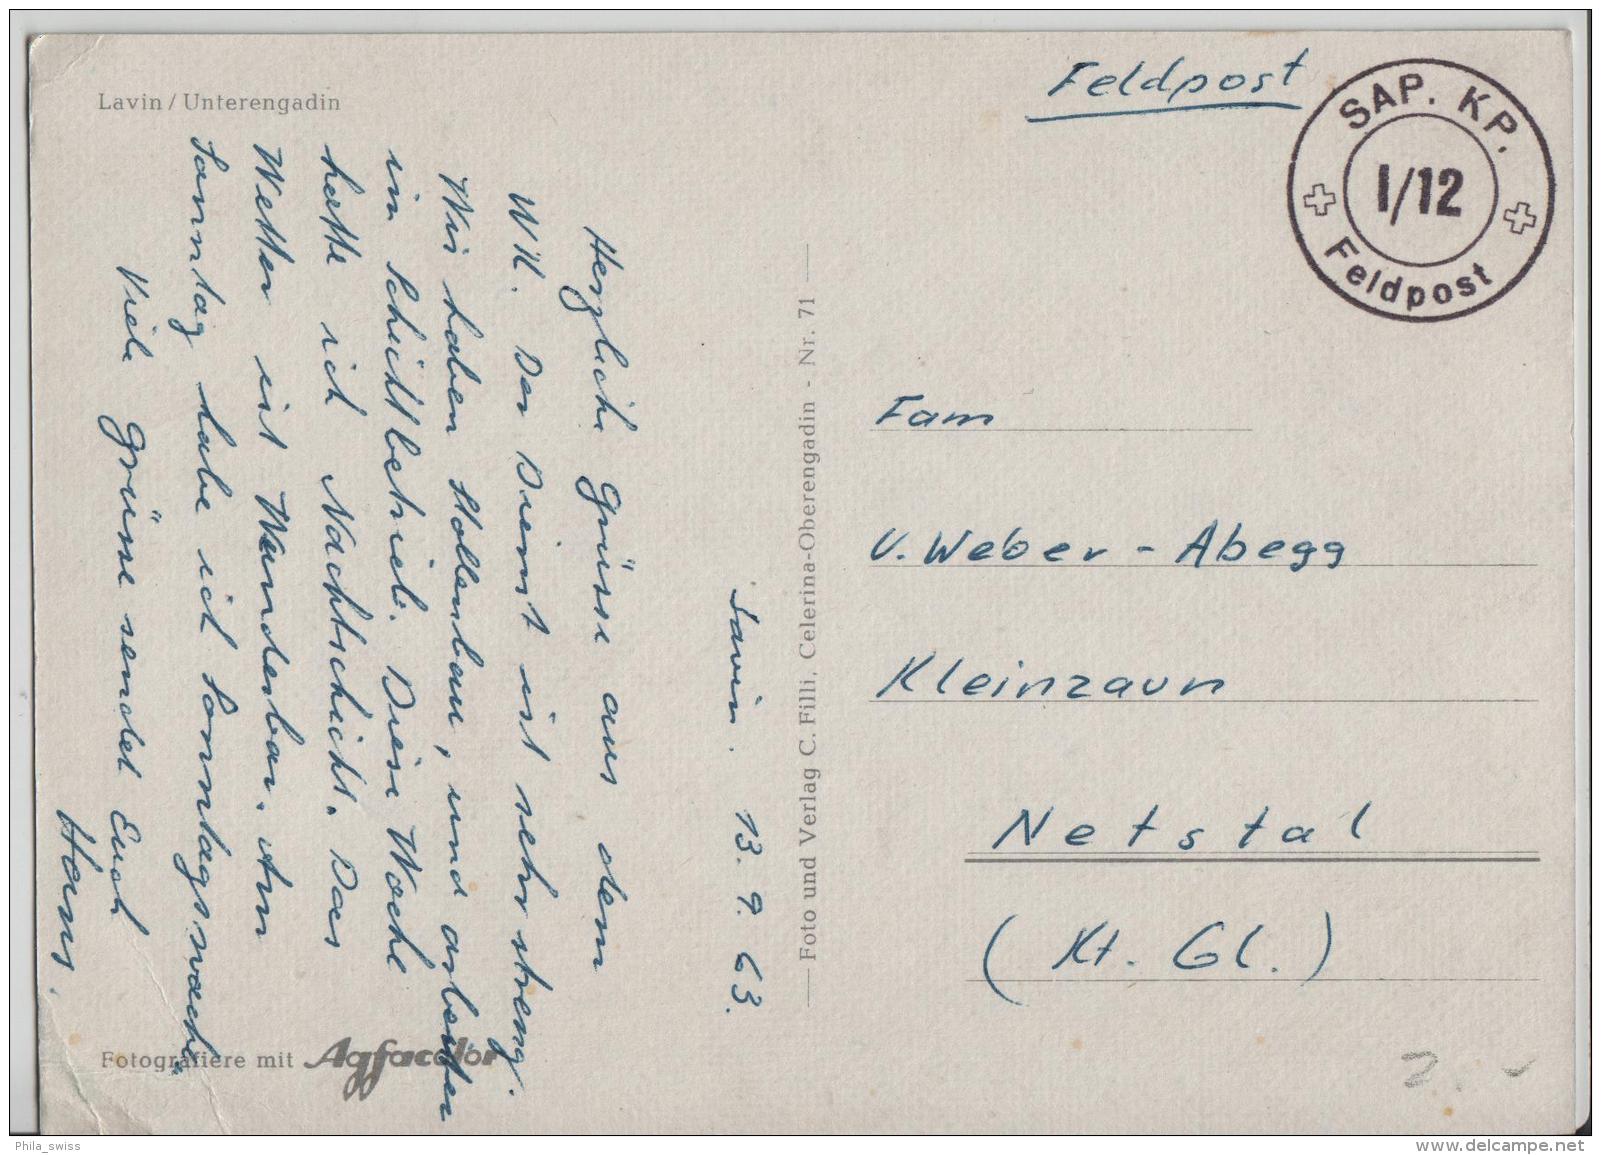 Lavin / Unterengadin
Lavin. 13. 9. 63.
Herzliche Grüsse aus dem
WK. Der Dienst ist sehr streng.
Wir haben Stollenbau, und arbeiten
in Schichtbetrieb. Diese Woche
hatte ich Nachtschicht. Das
Wetter ist Wunderbar. Am
Sonntag habe ich Sonntagswache
Viele Grüsse sendet Euch
Hans.
Fotografiere mit Agfacolor
Foto und Verlag C. Filli, Celerina-Oberengadin - Nr. 71
Feldpost
SAP. KP.
I/12
Feldpost
Fam
V. Weber - Abegg
Kleinzaun
Netstal
( Kt. Gl. )
Phila_swiss
www.delcampe.net